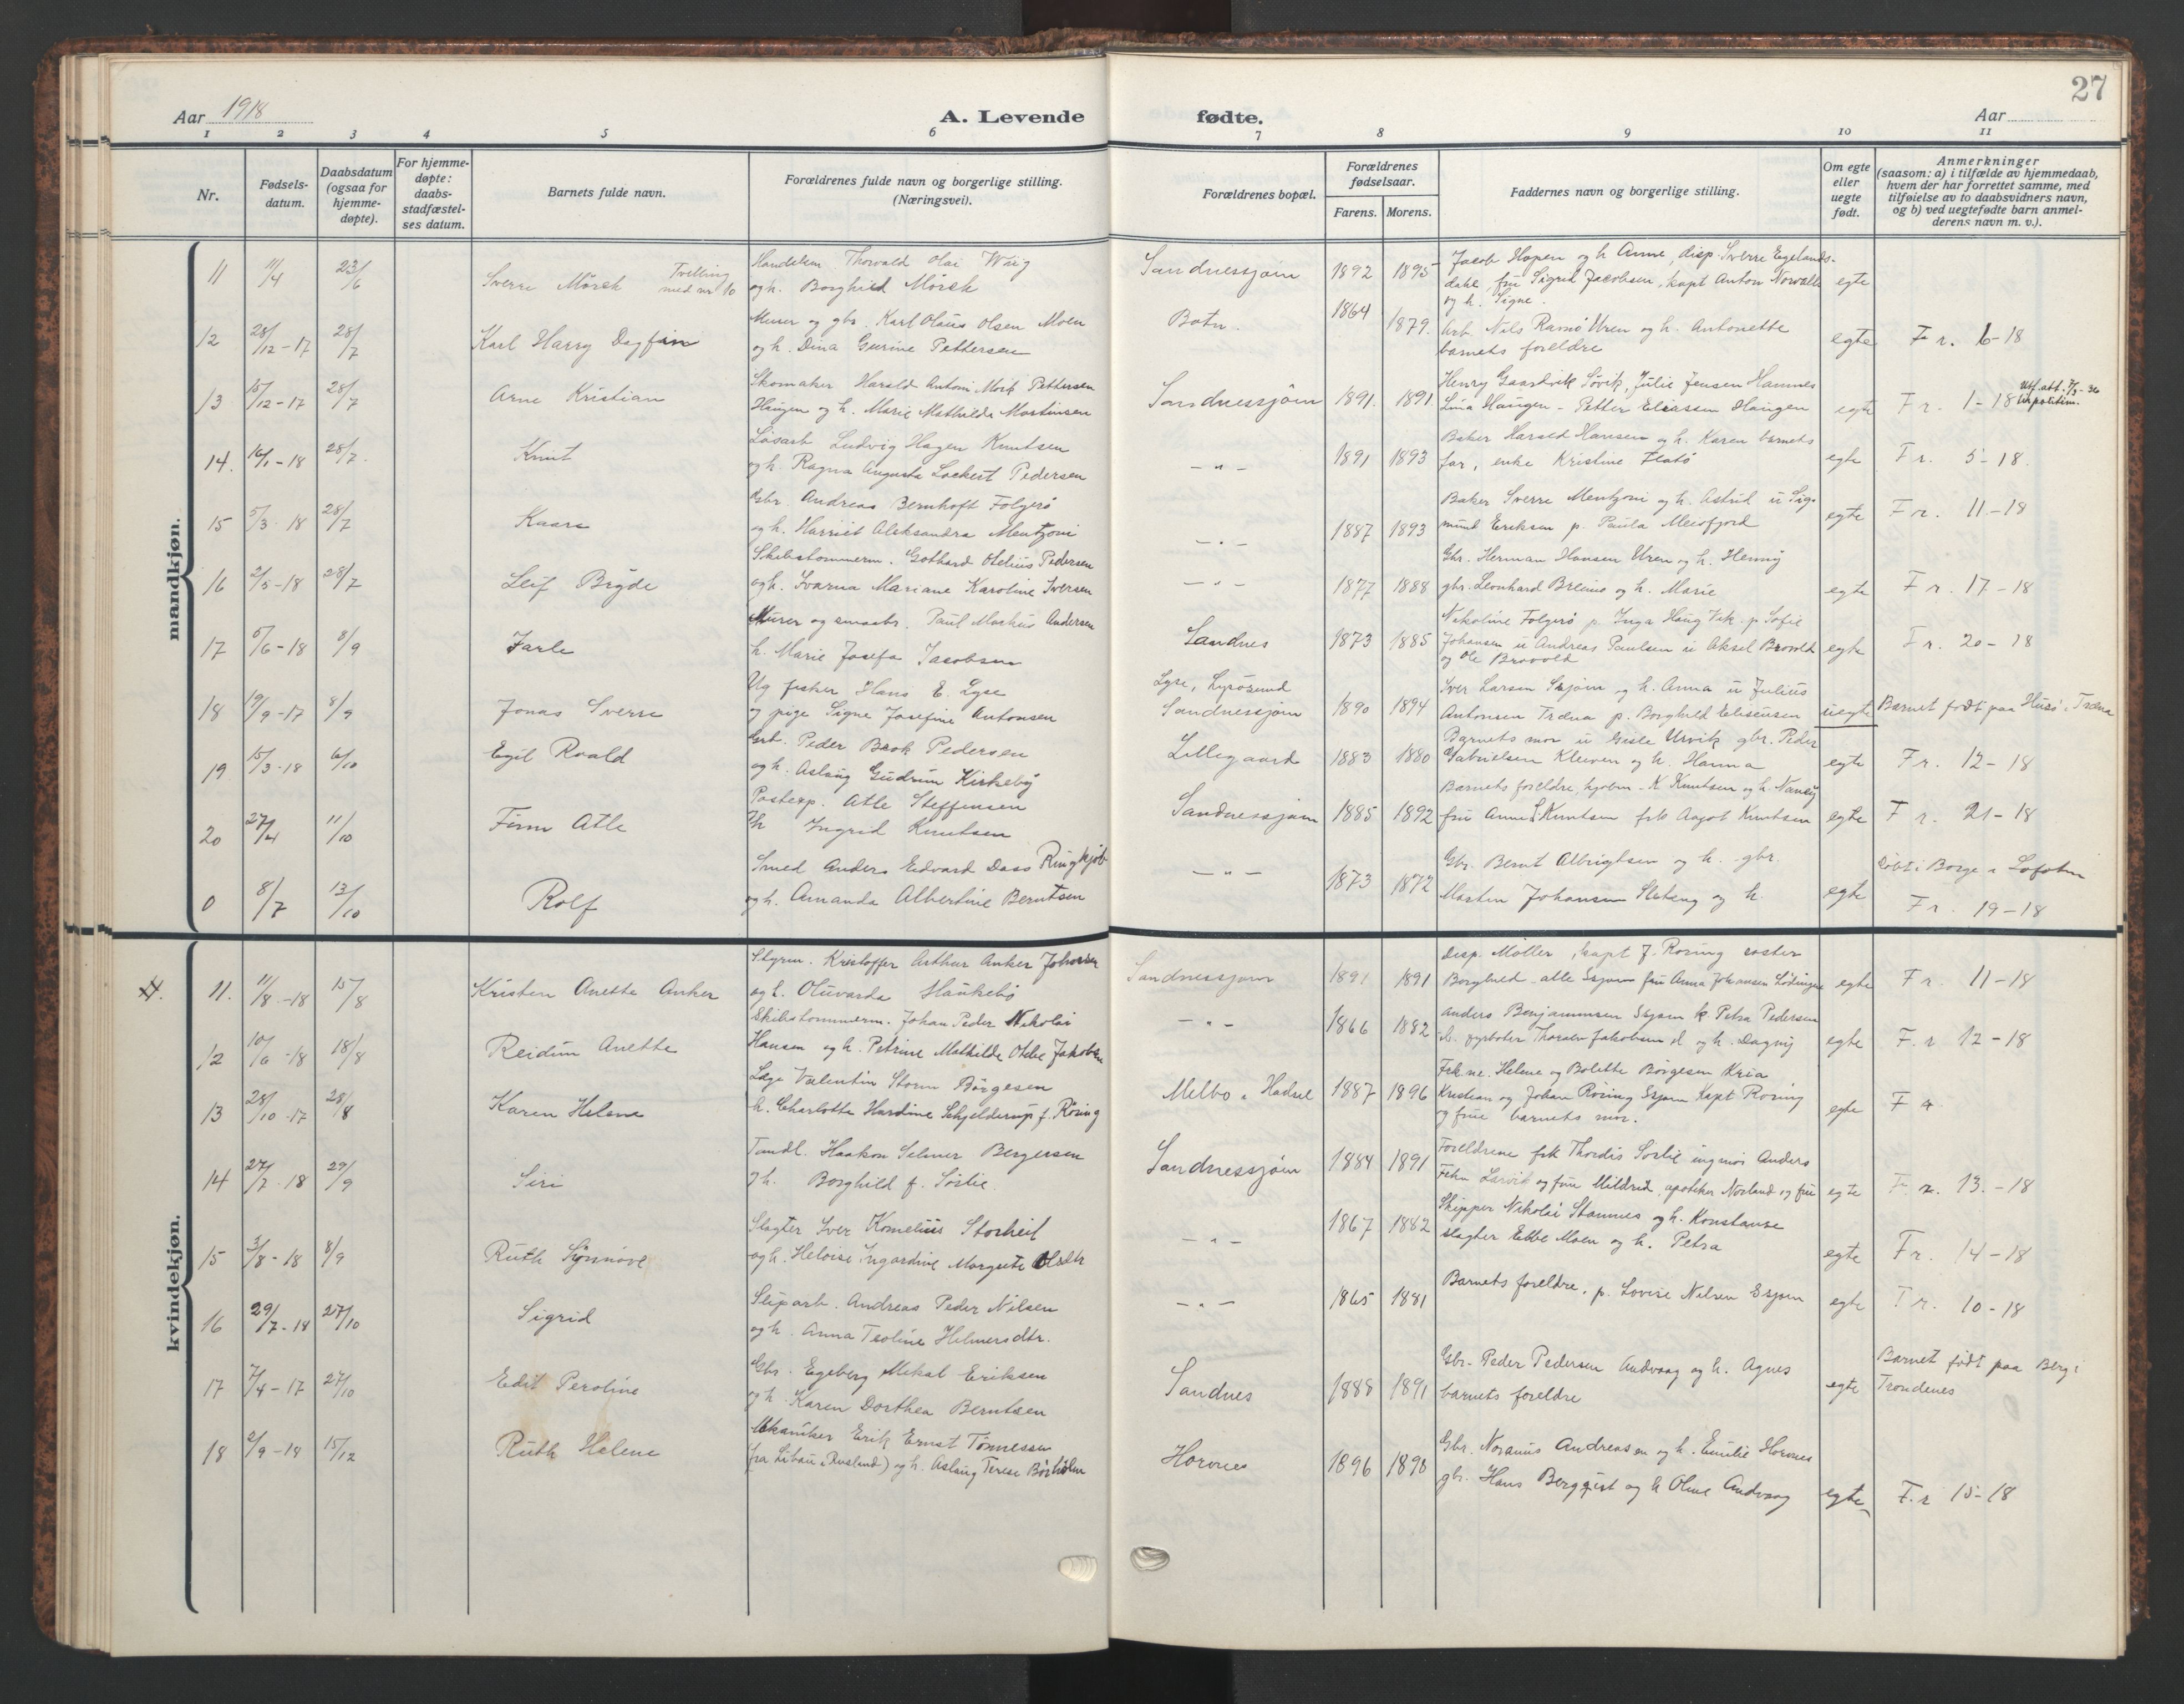 27
Aar 1918
A. Levende
fødte.
Aar
1 2 3 4 5 6 7 8 9 10 11
Nr.
Fødsels-
datum.
Daabsdatum
(ogsaa for
hjemme-
døpte).
For hjemme-
døpte:
daabs-
stadfæstel-
ses datum.
Barnets fulde navn.
Forældrenes fulde navn og borgerlige stilling.
(Næringsvei).
Forældrenes bopæl.
Forældrenes
fødselsaar.
Farens. Morens.
Faddernes navn og borgerlige stilling.
Om egte
eller
uegte
født.
Anmerkninger
(saasom: a) i tilfælde av hjemmedaab,
hvem der har forrettet samme, med
tilføielse av to daabsvidners navn,
og b) ved uegtefødte barn anmel-
derens navn m. v.).
mandkjøn.
11 11/4 23/6 Sverre Mörch Tvilling
med nr 10
Handelsm Thorvald Olai Waag
og h. Borghild Mörch
Sandnessjøen 1892 1895
Jacob Hopen og h Anne, disp. Sverre Egelands-
dahl fru Sigrid Jacobsen, kapt Anton Novalls
og h. Signe.
egte
12 28/12-17 28/7 Karl Harry Dagfin
Murer og gbr. Karl Olaus Olsen Moen
og h. Dina Gurine Pettersen
Botn. 1864 1879.
Arb. Nils Ramsö Uren og h. Antonette
barnets foreldre
egte Fr. 6-18
13 15/12-17 28/7 Arne Kristian
Skomaker Harald Antoni Mork Pettersen
Haugen og h. Marie Mathilde Martinsen
Sandnessjøen 1891 1891
Henry Gaardvik Søvik, Julie Jensen Hamnes
Lina Haugen - Petter Eliassen Haugen
egte Fr. 1-18 Utf. att. 7/3-36
14. 16/1-18 28/7. Knut
Løsarb Ludvig Hagen Knutsen
og h. Ragna Augusta Lockert Pedersen
- " - 1891 1893
Baker Harald Hansen og h. Karen barnets
far, enke Kristine Flatö
egte Fr. 5-18
15 5/3-18 28/7 Kaare
Gbr. Andreas Bernhoft Folgerø
og h. Harriet Aleksandra Mentzoni
- " - 1887 1893
Baker Sverre Mentzoni og h. Astrid u Sig-
mund Eriksen p. Paula Meiofjord
egte Fr. 11-18
16 2/5-18 28/7 Leif Brÿde
Skibstømmerm. Gothard Otelius Pedersen
og h. Ivarna Mariane Karoline Iversen
- " - 1877 1888
Gbr. Herman Hansen Uren og h. Henny
gbr. Leonhard Breimo og h. Marie
egte Fr. 17-18
17 5/6-18 8/9 Jarle
Murer og smaabr. Paul Markus Andersen
h. Marie Josefa Jacobsen
Sandnes 1873 1885
Nikoline Folgerø p. Inga Haug Vik. p. Sofie
Johansen u Andreas Paulsen u Aksel Brovold
og Ole Brovold
egte Fr. 20-18
18 19/9-17 8/9 Jonas Sverre
Ug fisker Hans E. Lyse
og pige Signe Josefine Antonsen
Lyse, Lysøsund
Sandnessjøen 1890 1894
Iver Larsen Ssjøen og h. Anna u Julius
Antonsen Træna p. Borghild Eliseusen
uegte Barnet født paa Husø i Træna
19 15/3-18 6/10 Egil Roald
Gbr. Peder Brok Pedersen
og h. Aslaug Gudrun Kirkeby
Lillegaard 1883 1880
Barnets mor u Gisle Urvik gbr. Peder
Gabrielsen Kleiven og h. Hanna
egte Fr. 12-18
20 27/4 11/10 Finn Atle
Postexp. Atle Steffensen
h Ingrid Knutsen
Sandnessjøen 1885 1892
Barnets foreldre, kjøbm. K Knutsen og h. Nancy
fru Anna S Knutsen frk Aagot Knutsen
egte Fr. 21-18
0 8/7 13/10 Rolf
Smed Anders Edvard Dass Ringkjøb
og h. Amanda Albertine Berntsen
- " - 1873 1872
Gbr. Bernt Albrigtsen og h. gbr.
Morten Johansen Slateng og h.
egte Døbt i Borge i Lofoten
Fr. 19-18
kvindekjøn.
11. 11/8-18 15/8 Kristen Anette Anker
Styrm. Kristoffer Arthur Anker Johansen
og h. Oluvarda Haukebö
Sandnessjøen 1891 1891
Disp. Møller, kapt J. Røring søster
Borghild - alle Ssjøen fru Anna Johansen Lödingen
egte Fr. 11-18
12 10/6-18 18/8 Reidun Anette
Skibstømmerm. Johan Peder Nikolai
Hansen og h. Petrine Mathilde Otelie Jakobsen
- " - 1866 1882
Anders Benjaminsen Ssjøen k Petra Pedersen
fyrbøter Thoralv Jakobsen d og h. Dagny
egte F.r 12-18
13 28/10-17 28/8 Karen Helene
Læge Valentin Storm Börgesen
h. Charlotte Hardine Schjelderup f. Röring
Melbo i Hadsel 1887 1896
Frk ne. Helene og Bolette Börgesen Kria
Kristian og Johan Röring Ssjøen Kapt Röring
og frue barnets mor.
egte F 4
14 27/7-18 29/9 Siri
Tandl. Haakon Selmer Bergersen
og h. Borghild f. Sörlie
Sandnessjøen 1884 1891
Foreldrene frk Thordis Sörlie ingeniør Anders
Fehn Larvik og frue Mildrid, apoteker Norland og frue
egte F.r. 13.-18
15 3/8-18 8/9 Ruth Synnöve
Slagter Iver Kornelius Storheil
og h. Heloise Ingardine Margrete Olsdtr
- " - 1867 1882
Skipper Nikolai Stamnes og h. Konstanse
slagter Ebbe Moen og h. Petra
egte Fr. 14-18
16 29/7-18 27/10 Sigrid
Sliparb. Andreas Peder Nilsen
og h. Anna Teoline Helmersdtr.
- " - 1865 1881
Barnets foreldre. p. Lovise Nilsen Ssjøen
egte Fr. 10-18
17 7/4-17 27/10 Edit Peroline
Gbr. Egeberg Mikal Eriksen
og h. Karen Dorthea Berntsen
Sandnes 1888 1891
Gbr. Peder Pedersen Andvaag og h. Agnes
barnets foreldre
egte Barnet født paa Berg i
Trondenes
18 2/9-18 15/12 Ruth Helene
Mekaniker Erik Ernst Tönnessen
(fra Libau i Rusland) og h. Aslaug Terese Börholm
Horvnes 1896 1898
Gbr. Noranus Andreasen og h. Emilie Horvnes
gbr. Hans Bergqvist og h Oline Andvaag
egte F.r 15-18